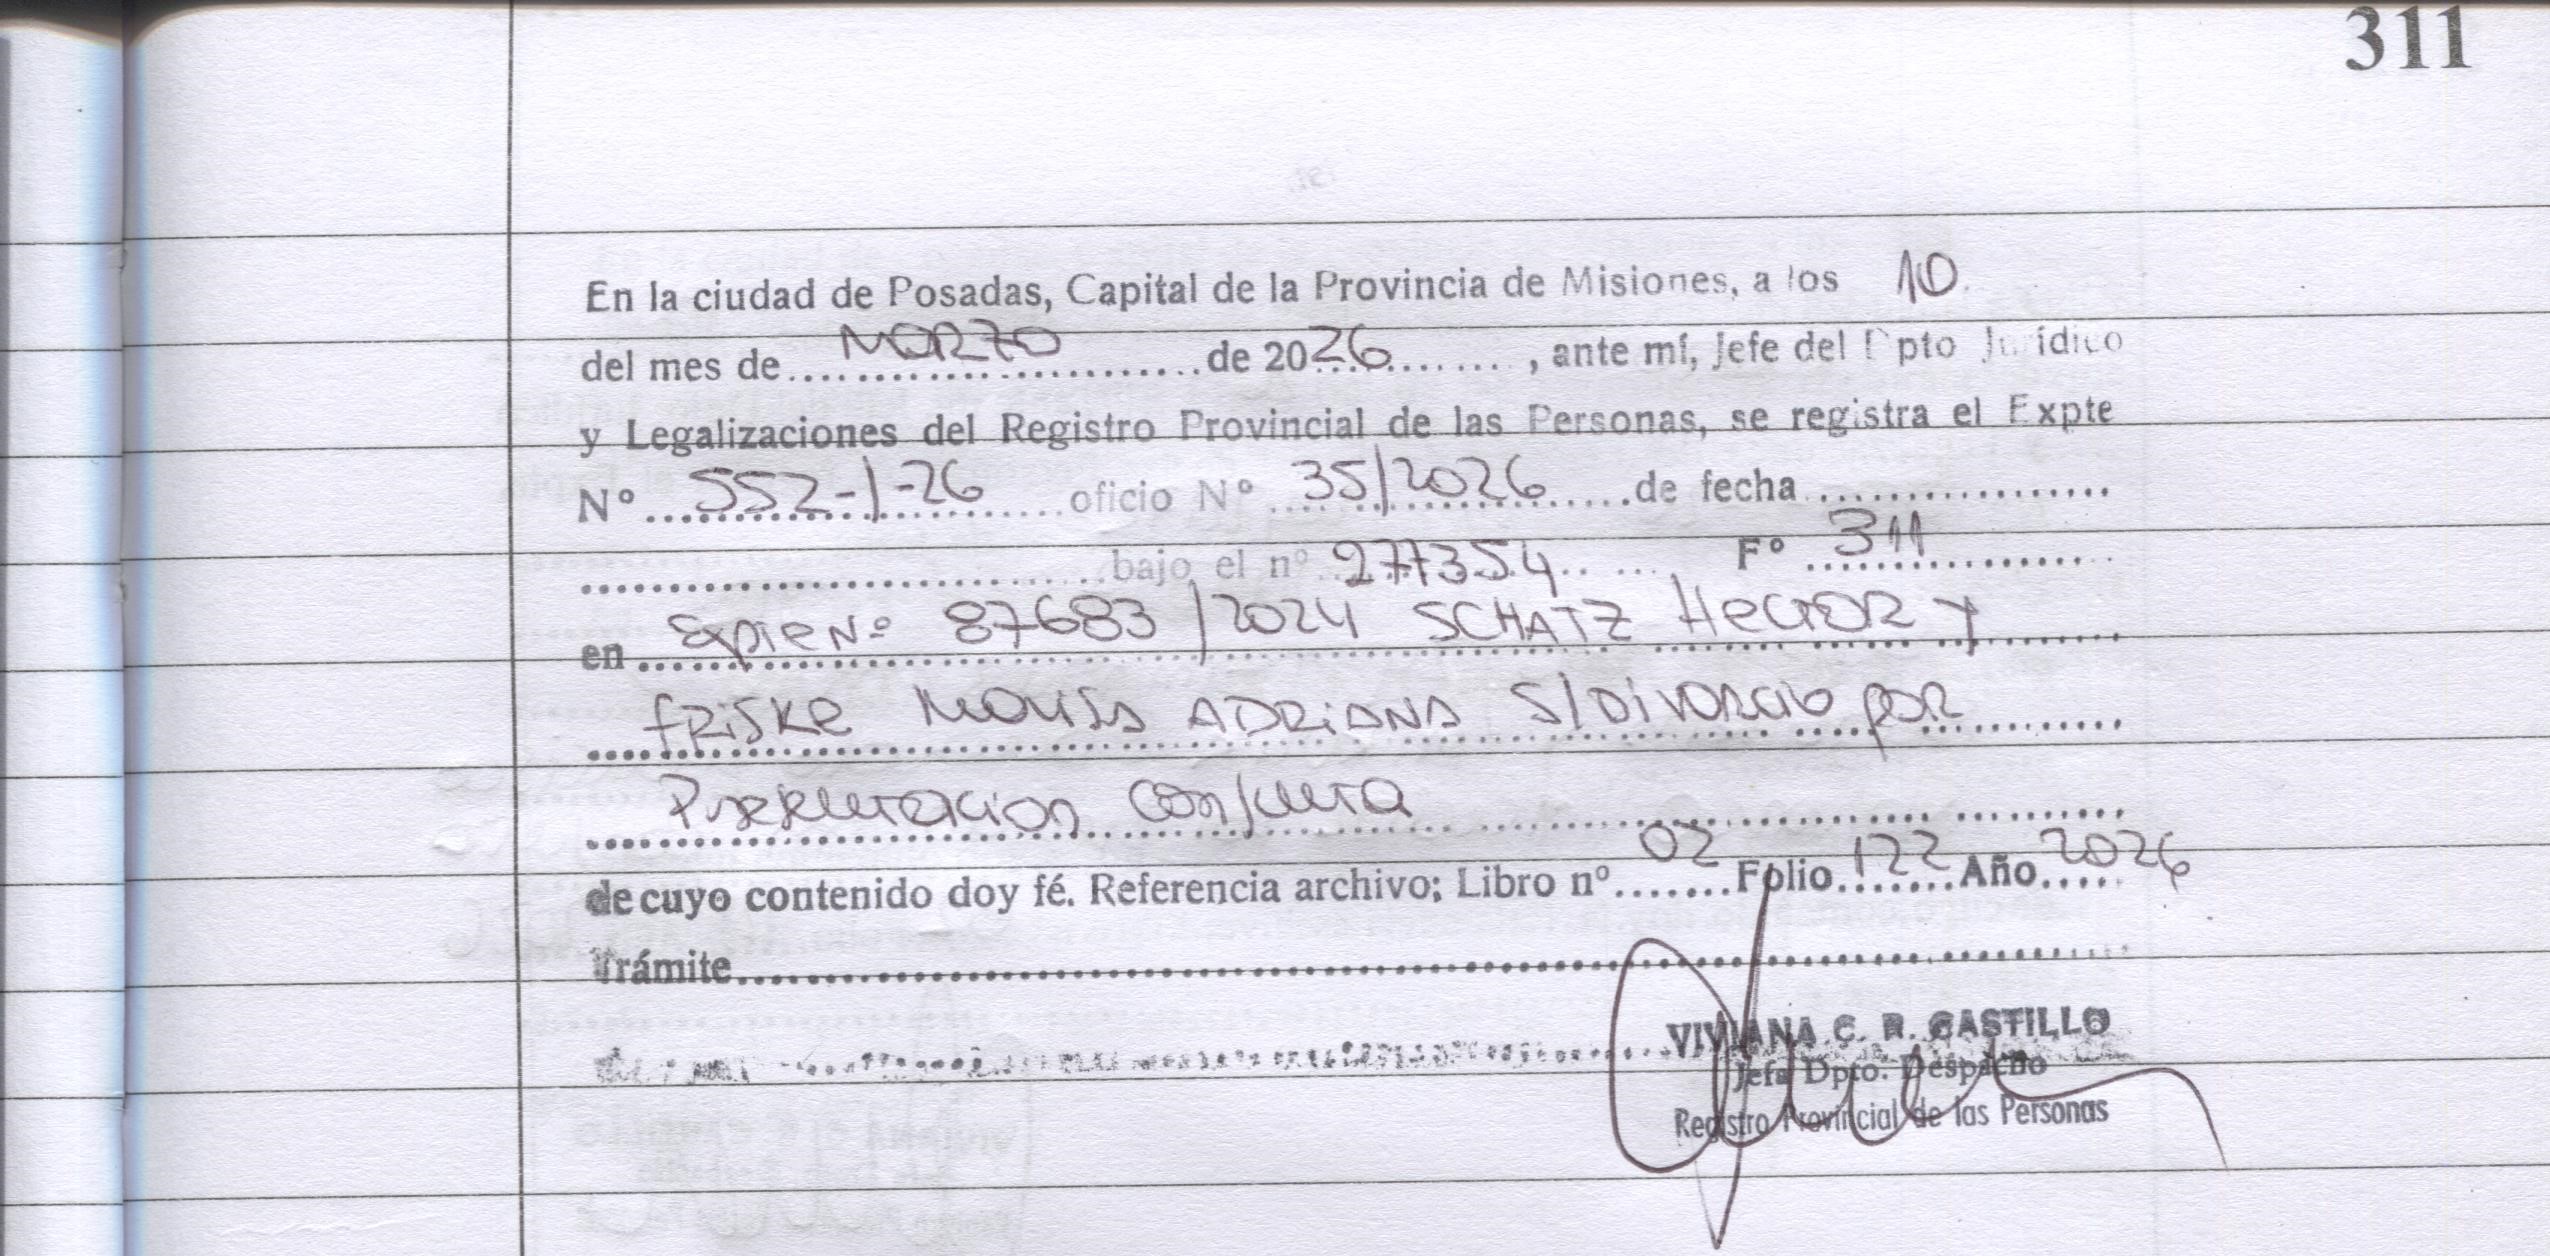 311
En la ciudad de Posadas, Capital de la Provincia de Misiones, a los 10
del mes de MARZO de 2026, ante mí, Jefe del Dpto Jurídico
y Legalizaciones del Registro Provincial de las Personas, se registra el Expte
Nº 552-1-26 oficio Nº 35/2026 de fecha
bajo el nº 277354 Fº 311
en Expte Nº 87683/2024 SCHATZ HecTOR y
fRiSKe ADRIANA S/DIVORCIO POR
Presentacion Conjunta
de cuyo contenido doy fé. Referencia archivo; Libro nº 02 Folio 122 Año 2026
Trámite
VIVIANA C. R. CASTILLO
Jefa Dpto. Despacho
Registro Provincial de las Personas